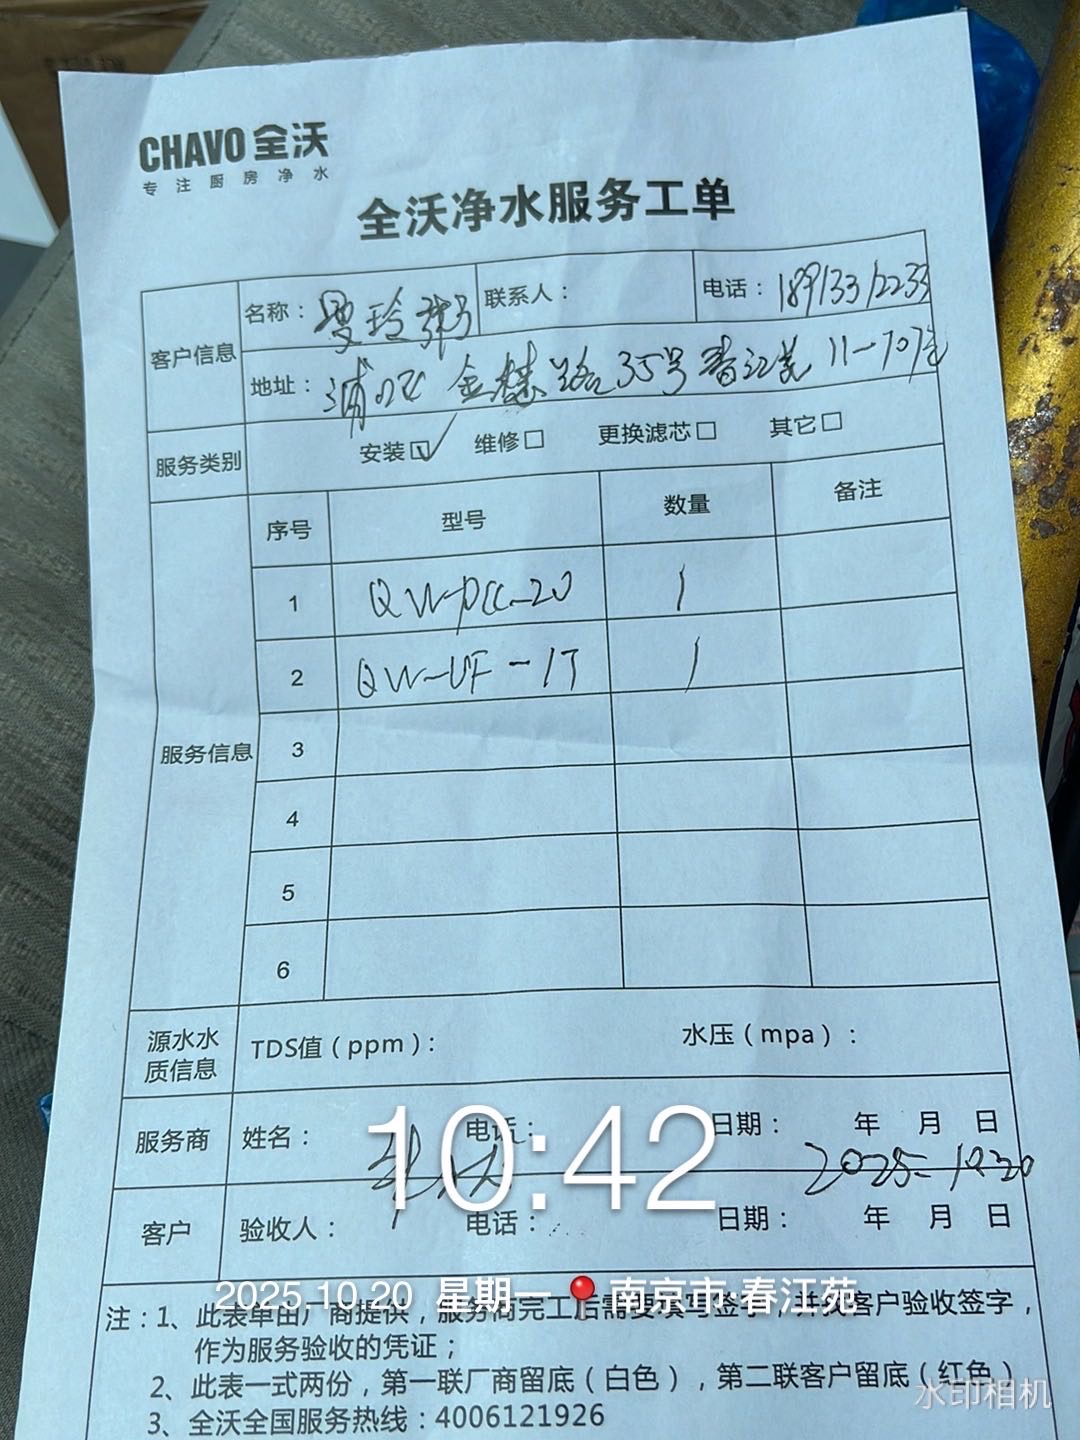 CHAVO 全沃
专注厨房净水
全沃净水服务工单
客户信息 名称： 联系人： 电话：18913312233
地址：浦 金 路35号春江苑 11-707
服务类别 安装☑ 维修□ 更换滤芯□ 其它□
服务信息 序号 型号 数量 备注
1 QW-PCC-20 1
2 QW-UF-1T 1
3
4
5
6
源水水质信息 TDS值（ppm）： 水压（mpa）：
服务商 姓名： 电话： 日期： 年 月 日
2025-10.20
10:42
客户 验收人： 电话： 日期： 年 月 日
2025.10.20 星期一 📍南京市·春江苑
注：1、此表单由厂商提供，服务商完工后需要填写签字，并交客户验收签字，
作为服务验收的凭证；
2、此表一式两份，第一联厂商留底（白色），第二联客户留底（红色）
3、全沃全国服务热线：4006121926
水印相机